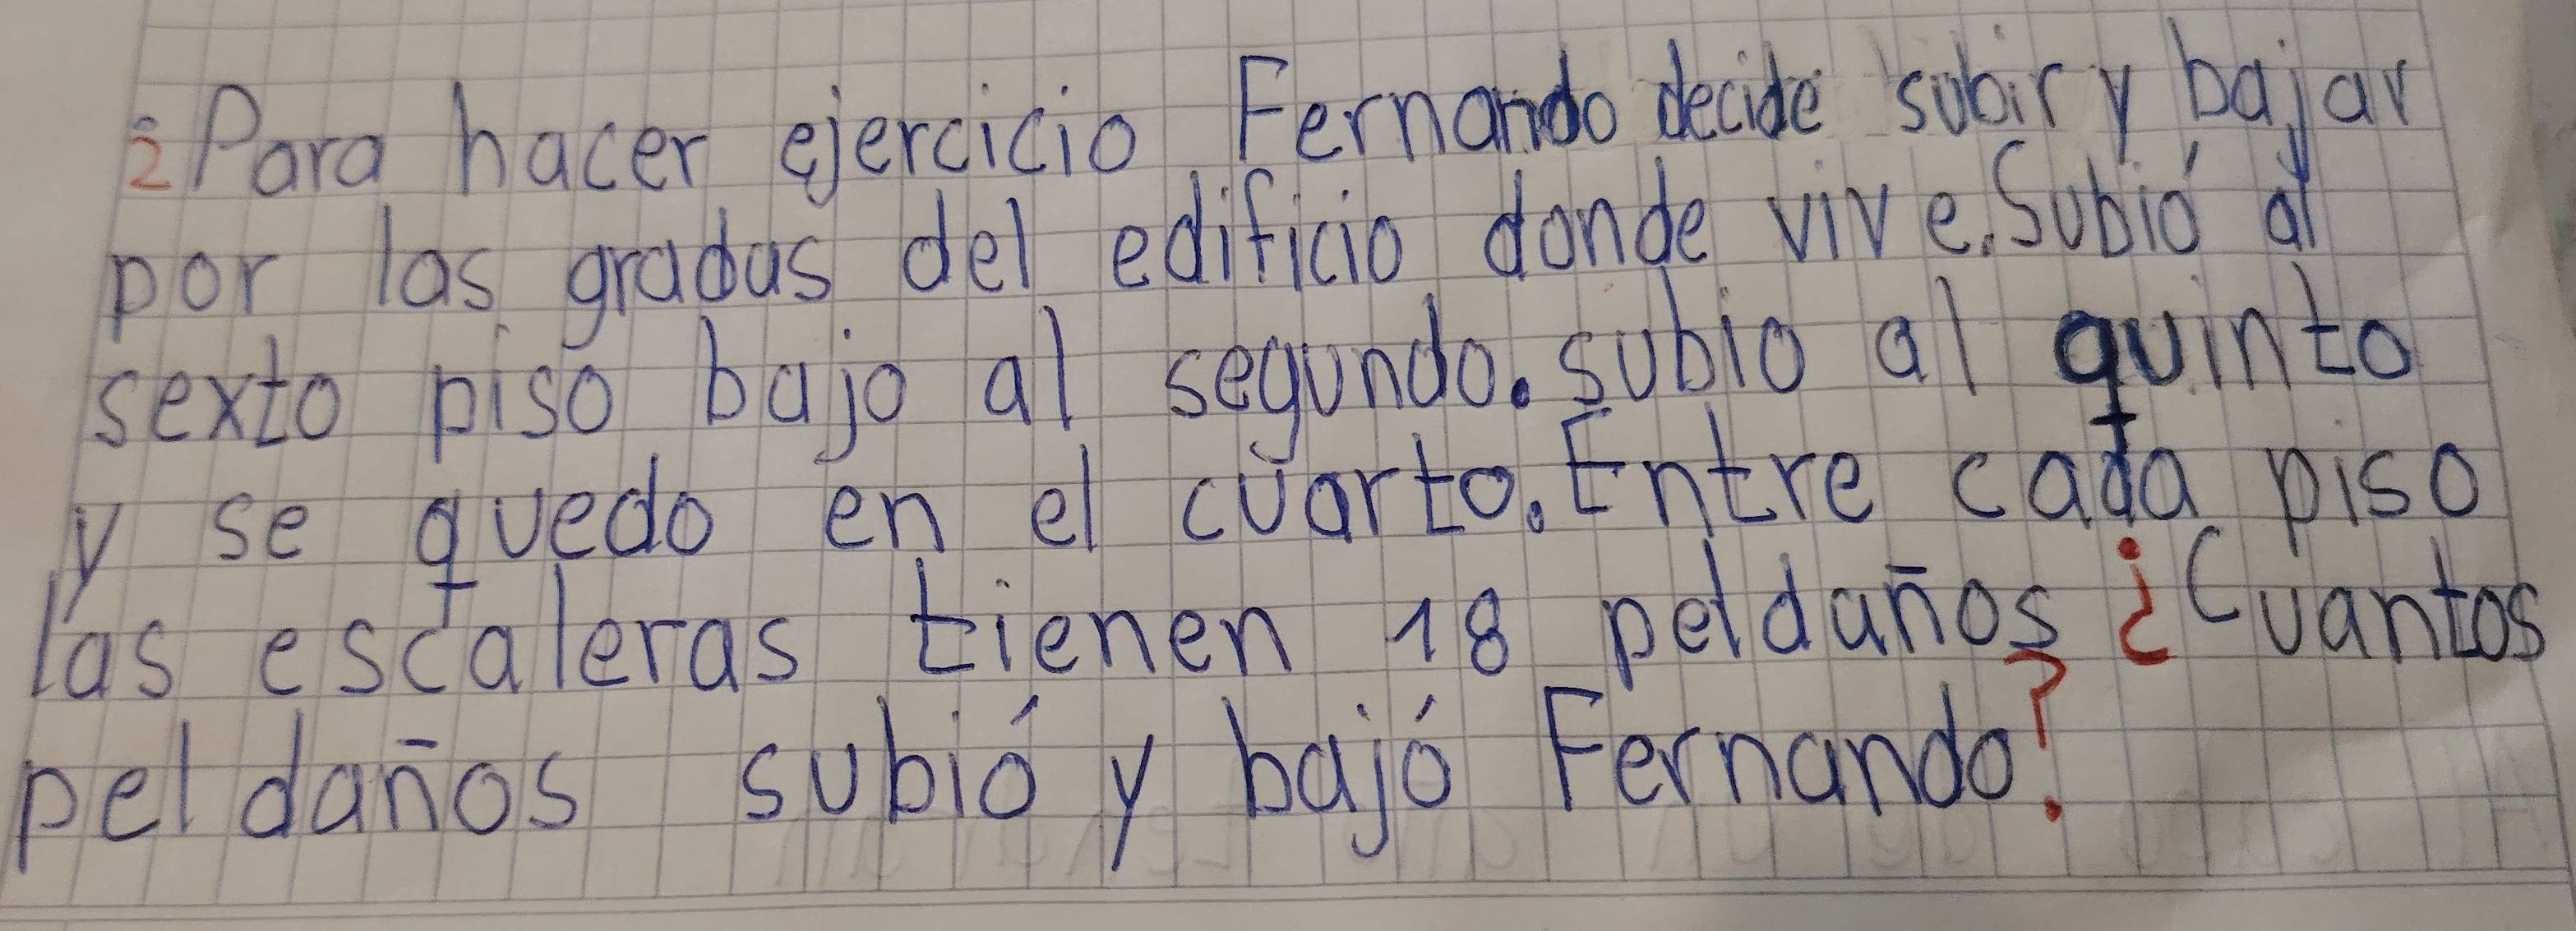 ¿Para hacer ejercicio Fernando decide subir y bajar
por las gradas del edificio donde vive. Subió al
sexto piso bajo al segundo. subio al quinto
y se quedo en el cuarto. Entre cada piso
las escaleras tienen 18 peldaños ¿Cuantos
peldaños subió y bajó Fernando?